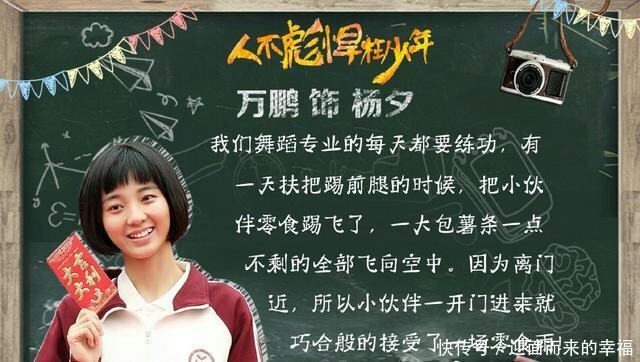 人不彪悍枉少年
万鹏 饰 杨夕
我们舞蹈专业的每天都要练功，有
一天扶把踢前腿的时候，把小伙
伴零食踢飞了，一大包薯条一点
不剩的全部飞向空中。因为离门
近，所以小伙伴一开门进来就
巧合般的接受了一场零食雨
大吉大利
快传号/迎面而来的幸福